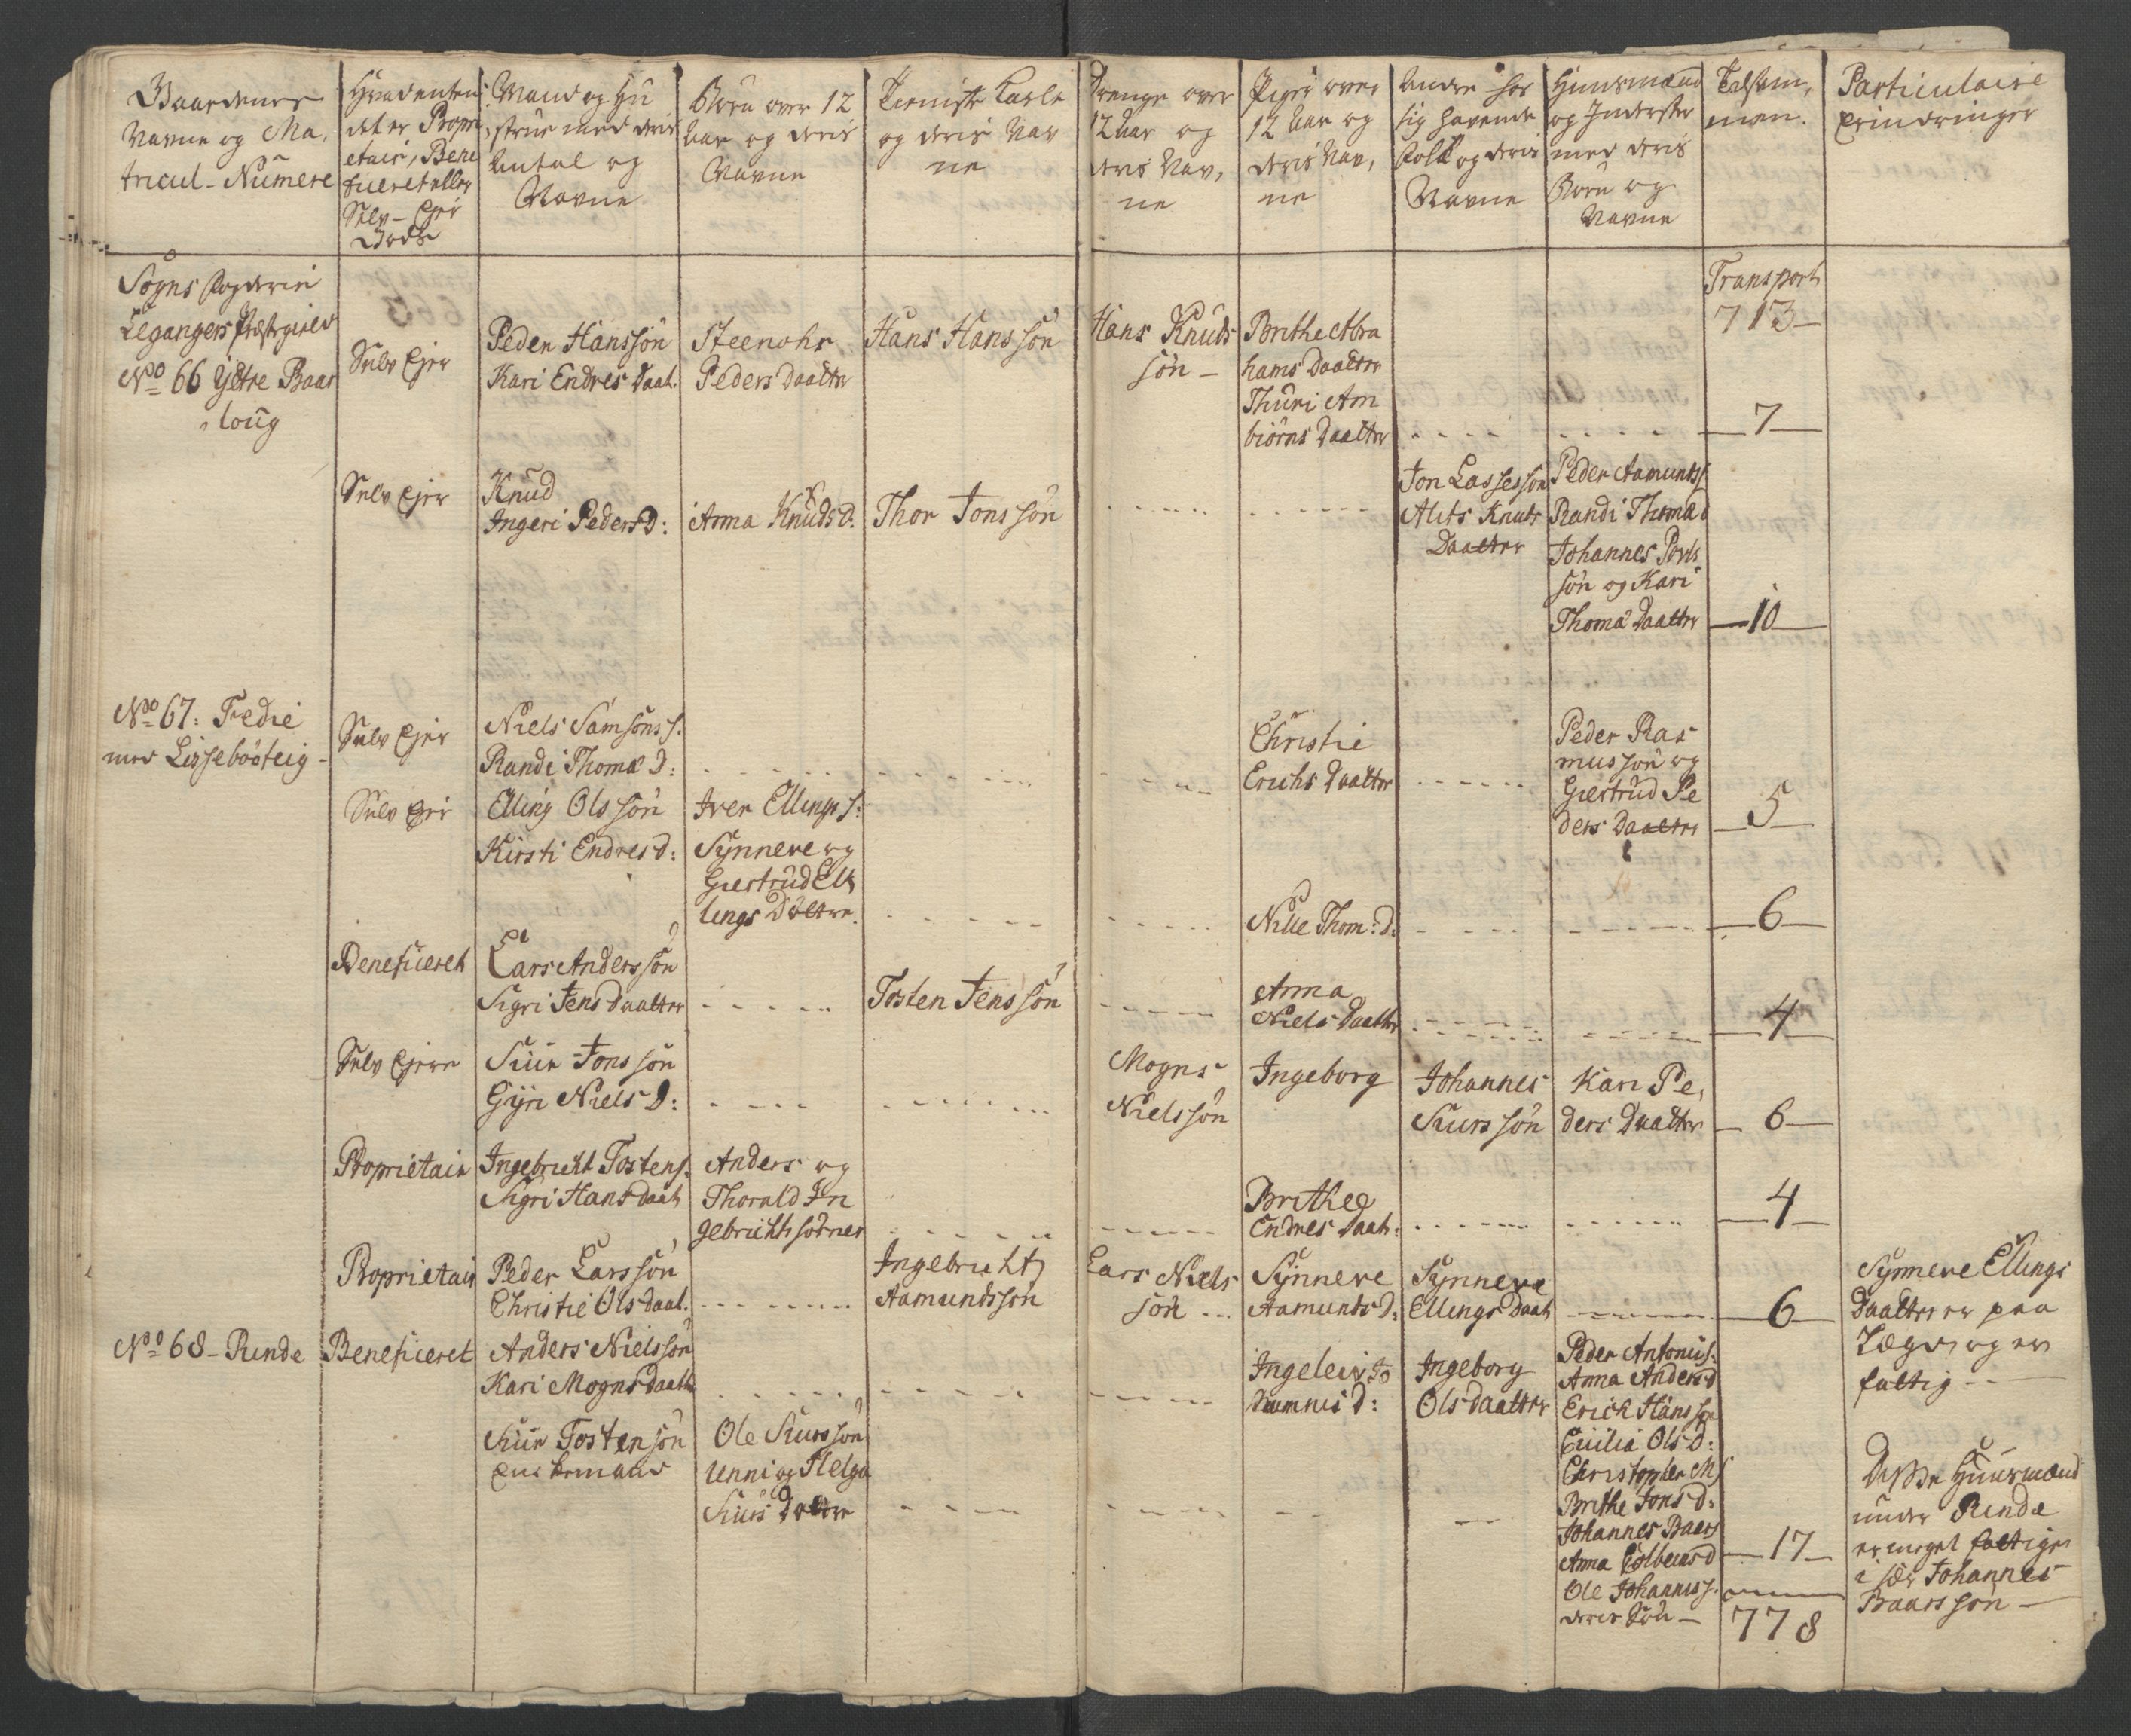 Gaardenes
Navne og Ma,
tricul-Numere
Hvad enten
det er Propri
etair, Bene
ficeret eller
Selv-Ejer
Gods
Mand og Hu
strue med deris
Antal og
Navne
Børn over 12
Aar og deris
Navne
Tieniste Karle
og deris Nav
ne
Drenge over
12 Aar og
deris Nav,
ne
Piger over
12 Aar og
deris Nav,
ne
Andre hos
sig havende
Folk og deris
Navne
Huusmænd
og Inderster
med deris
Børn og
Navne
Talsam,
men.
Particulaire
Erindringer
Sogns Fogderie
Legangers Præstegield
No 66 Ÿttre Baar
loug
Selv Ejer
Peder Hanssøn
Kari Endres Daat.
Steenohr
Peders Daatter
Hans Hanssøn
Hans Knuds
søn -
Brithe Abra
hams Daatter
Thuri Am
biørns Daatter
Transport
713-
7
Selv Ejer
Knud
Ingeri Peders D:
Anna Knuds D:
Thor Jonssøn
Jon Lassesøn
Alits Knuts
Daatter
Peder Aamunds s
Randi Thomæ d
Johannes Povls
søn og Kari
Thomæ Daatter
10
No 67: Fedie
med Lisseboteig-
Selv Ejer
Niels Samsøns s.
Randi Thomæ D:
Christie
Erichs Daatter
Peder Ras
mussøn og
Giertrud Pe
ders Daatter
5
Selv Ejer
Elling Olssøn
Kirsti Endres d:
Iver Ellings s:
Synneve og
Giertrud El
lings Døttre.
Nille Thom: D:
6
Beneficeret
Lars Anderssøn
Sigri Jens Daatter
Tosten Jenssøn
Anna
Niels Daatter
4
Selv Ejere
Siur Jonssøn
Gÿri Niels D:
Mogns
Nielssøn
Ingeborg
Johannes
Siurssøn
Kari Pe,
ders Daatter
6
Proprietair
Ingebricht Tostens.
Sigri Hans daat
Anders og
Thorald In
gebrichts sønner
Brithe
Endres Daat.
4
Proprietair
Peder Larssøn
Christie Ols daat.
Ingebricht
Aamundssøn
Lars Niels
søn
Synneve
Aamunds D:
Synneve
Ellings Daat
6
Synneve Ellings
Daatter er paa
Lægd, og er
fattig
No 68- Rinde
Beneficeret
Anders Nielssøn
Kari Mogns Daatter
Ingeleiv To
D:
Ingeborg
Ols Daatter
Peder Antoni s:
Anna Anders d
Erick Hanssøn
Ols D:
Christopher M s
Brithe Jons d:
Johannes Baars
Anna Colbeens d
Ole Johanness.
deres Søn-
Siur Tostensøn
Enkemand
Ole Siurssøn
Unni og Helga
Siurs Døttre
17
Disse Huusmænd
under Rinde
er meget fattige
i sær Johannes
Baarssøn
778